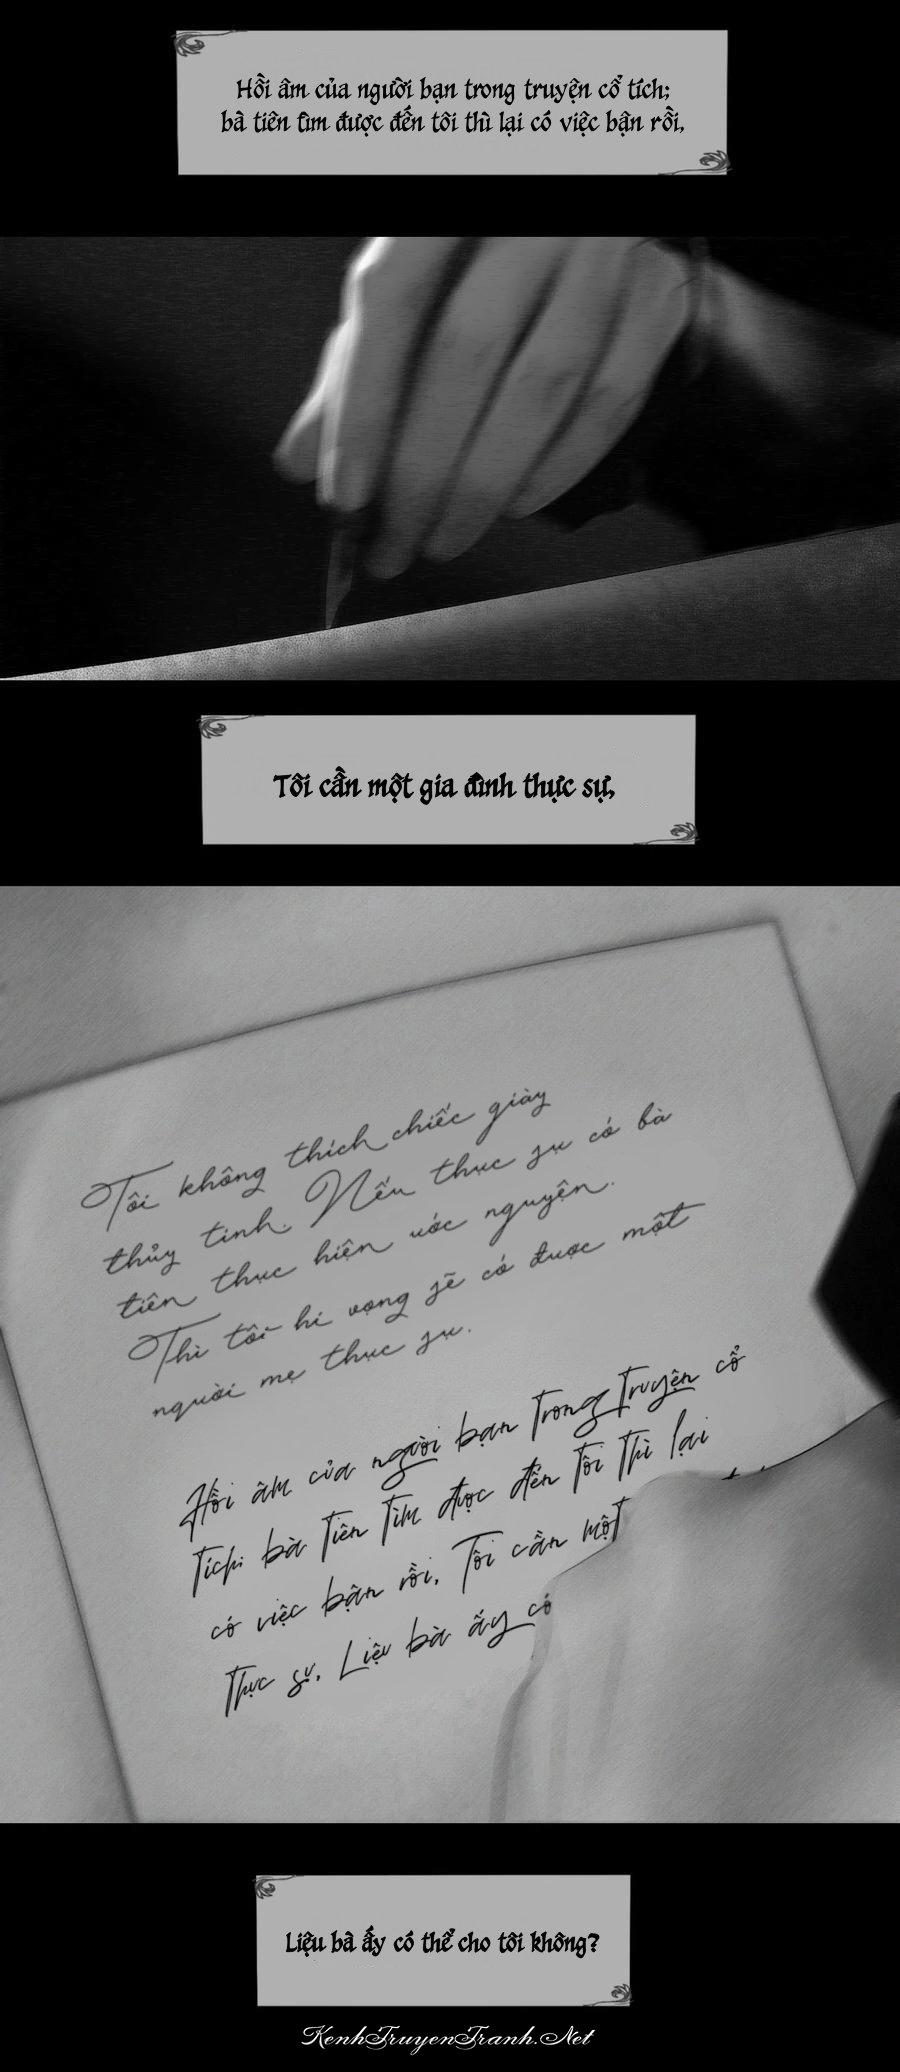 Hồi âm của người bạn trong truyện cổ tích;
bà tiên tìm được đến tôi thì lại có việc bận rồi,
Tôi cần một gia đình thực sự,
Tôi không thích chiếc giày
thủy tinh. Nếu thực sự có bà
tiên thực hiện ước nguyện.
Thì tôi hi vọng sẽ có được một
người mẹ thực sự.
Hồi âm của người bạn trong truyện cổ
tích; bà tiên tìm được đến tôi thì lại
có việc bận rồi, Tôi cần một
thực sự. Liệu bà ấy có
Liệu bà ấy có thể cho tôi không?
KenhTruyenTranh.Net